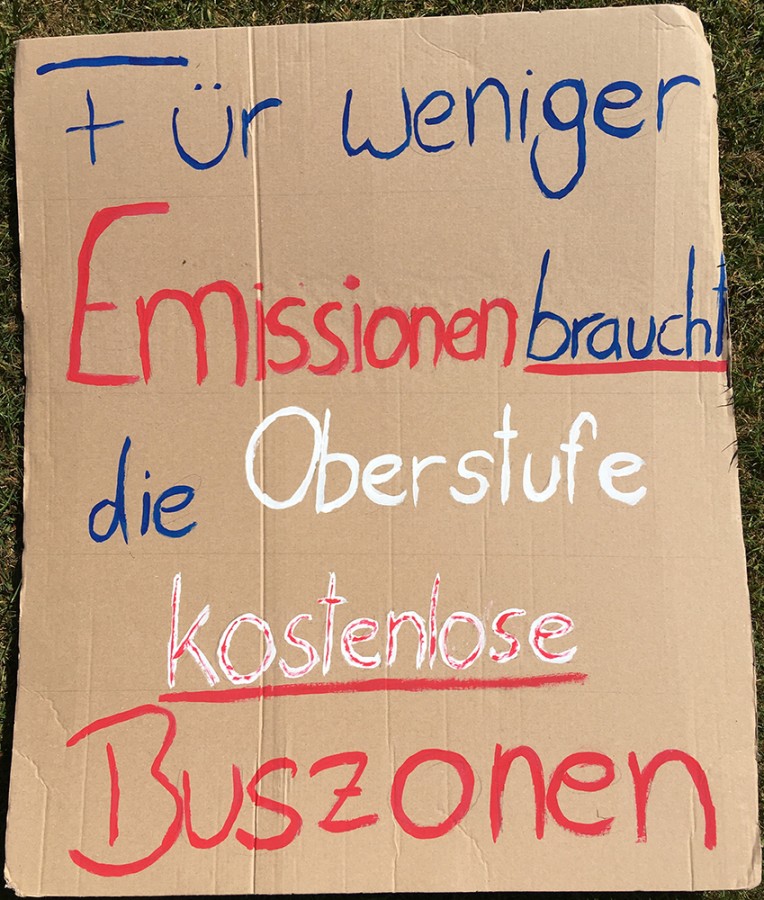 Für weniger
Emissionen braucht
die Oberstufe
kostenlose
Buszonen